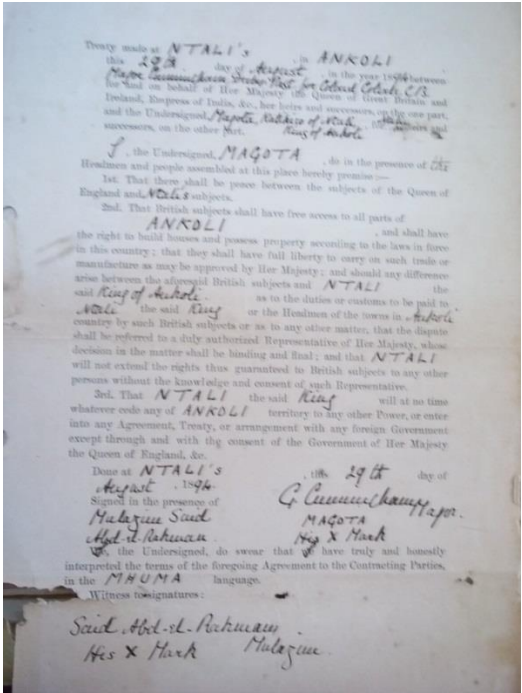 Treaty made at NTALI's , in ANKOLI
this 29th day of August , in the year 1894 between
Major Cunningham for Colonel Colvile C.B.
for and on behalf of Her Majesty the Queen of Great Britain and
Ireland, Empress of India, &c., her heirs and successors, on the one part,
and the Undersigned, Magota, Katikiro of Ntali, heirs and
successors, on the other part. King of Ankoli
I , the Undersigned, MAGOTA , do in the presence of the
Headmen and people assembled at this place hereby promise :—
1st. That there shall be peace between the subjects of the Queen of
England and Ntali's subjects.
2nd. That British subjects shall have free access to all parts of
ANKOLI , and shall have
the right to build houses and possess property according to the laws in force
in this country ; that they shall have full liberty to carry on such trade or
manufacture as may be approved by Her Majesty ; and should any difference
arise between the aforesaid British subjects and NTALI the
said King of Ankoli as to the duties or customs to be paid to
Ntali the said King or the Headmen of the towns in Ankoli
country by such British subjects or as to any other matter, that the dispute
shall be referred to a duly authorized Representative of Her Majesty, whose
decision in the matter shall be binding and final ; and that NTALI
will not extend the rights thus guaranteed to British subjects to any other
persons without the knowledge and consent of such Representative.
3rd. That NTALI the said King will at no time
whatever cede any of ANKOLI territory to any other Power, or enter
into any Agreement, Treaty, or arrangement with any foreign Government
except through and with the consent of the Government of Her Majesty
the Queen of England, &c.
Done at NTALI's , this 29th day of
August , 1894.
Signed in the presence of G. Cunningham Major.
Mulazim Said MAGOTA
Abd-el-Rahman His X Mark
, the Undersigned, do swear that I have truly and honestly
interpreted the terms of the foregoing Agreement to the Contracting Parties,
in the MHUMA language.
Witness to signatures :
Said Abd-el-Rahman
His X Mark Mulazim